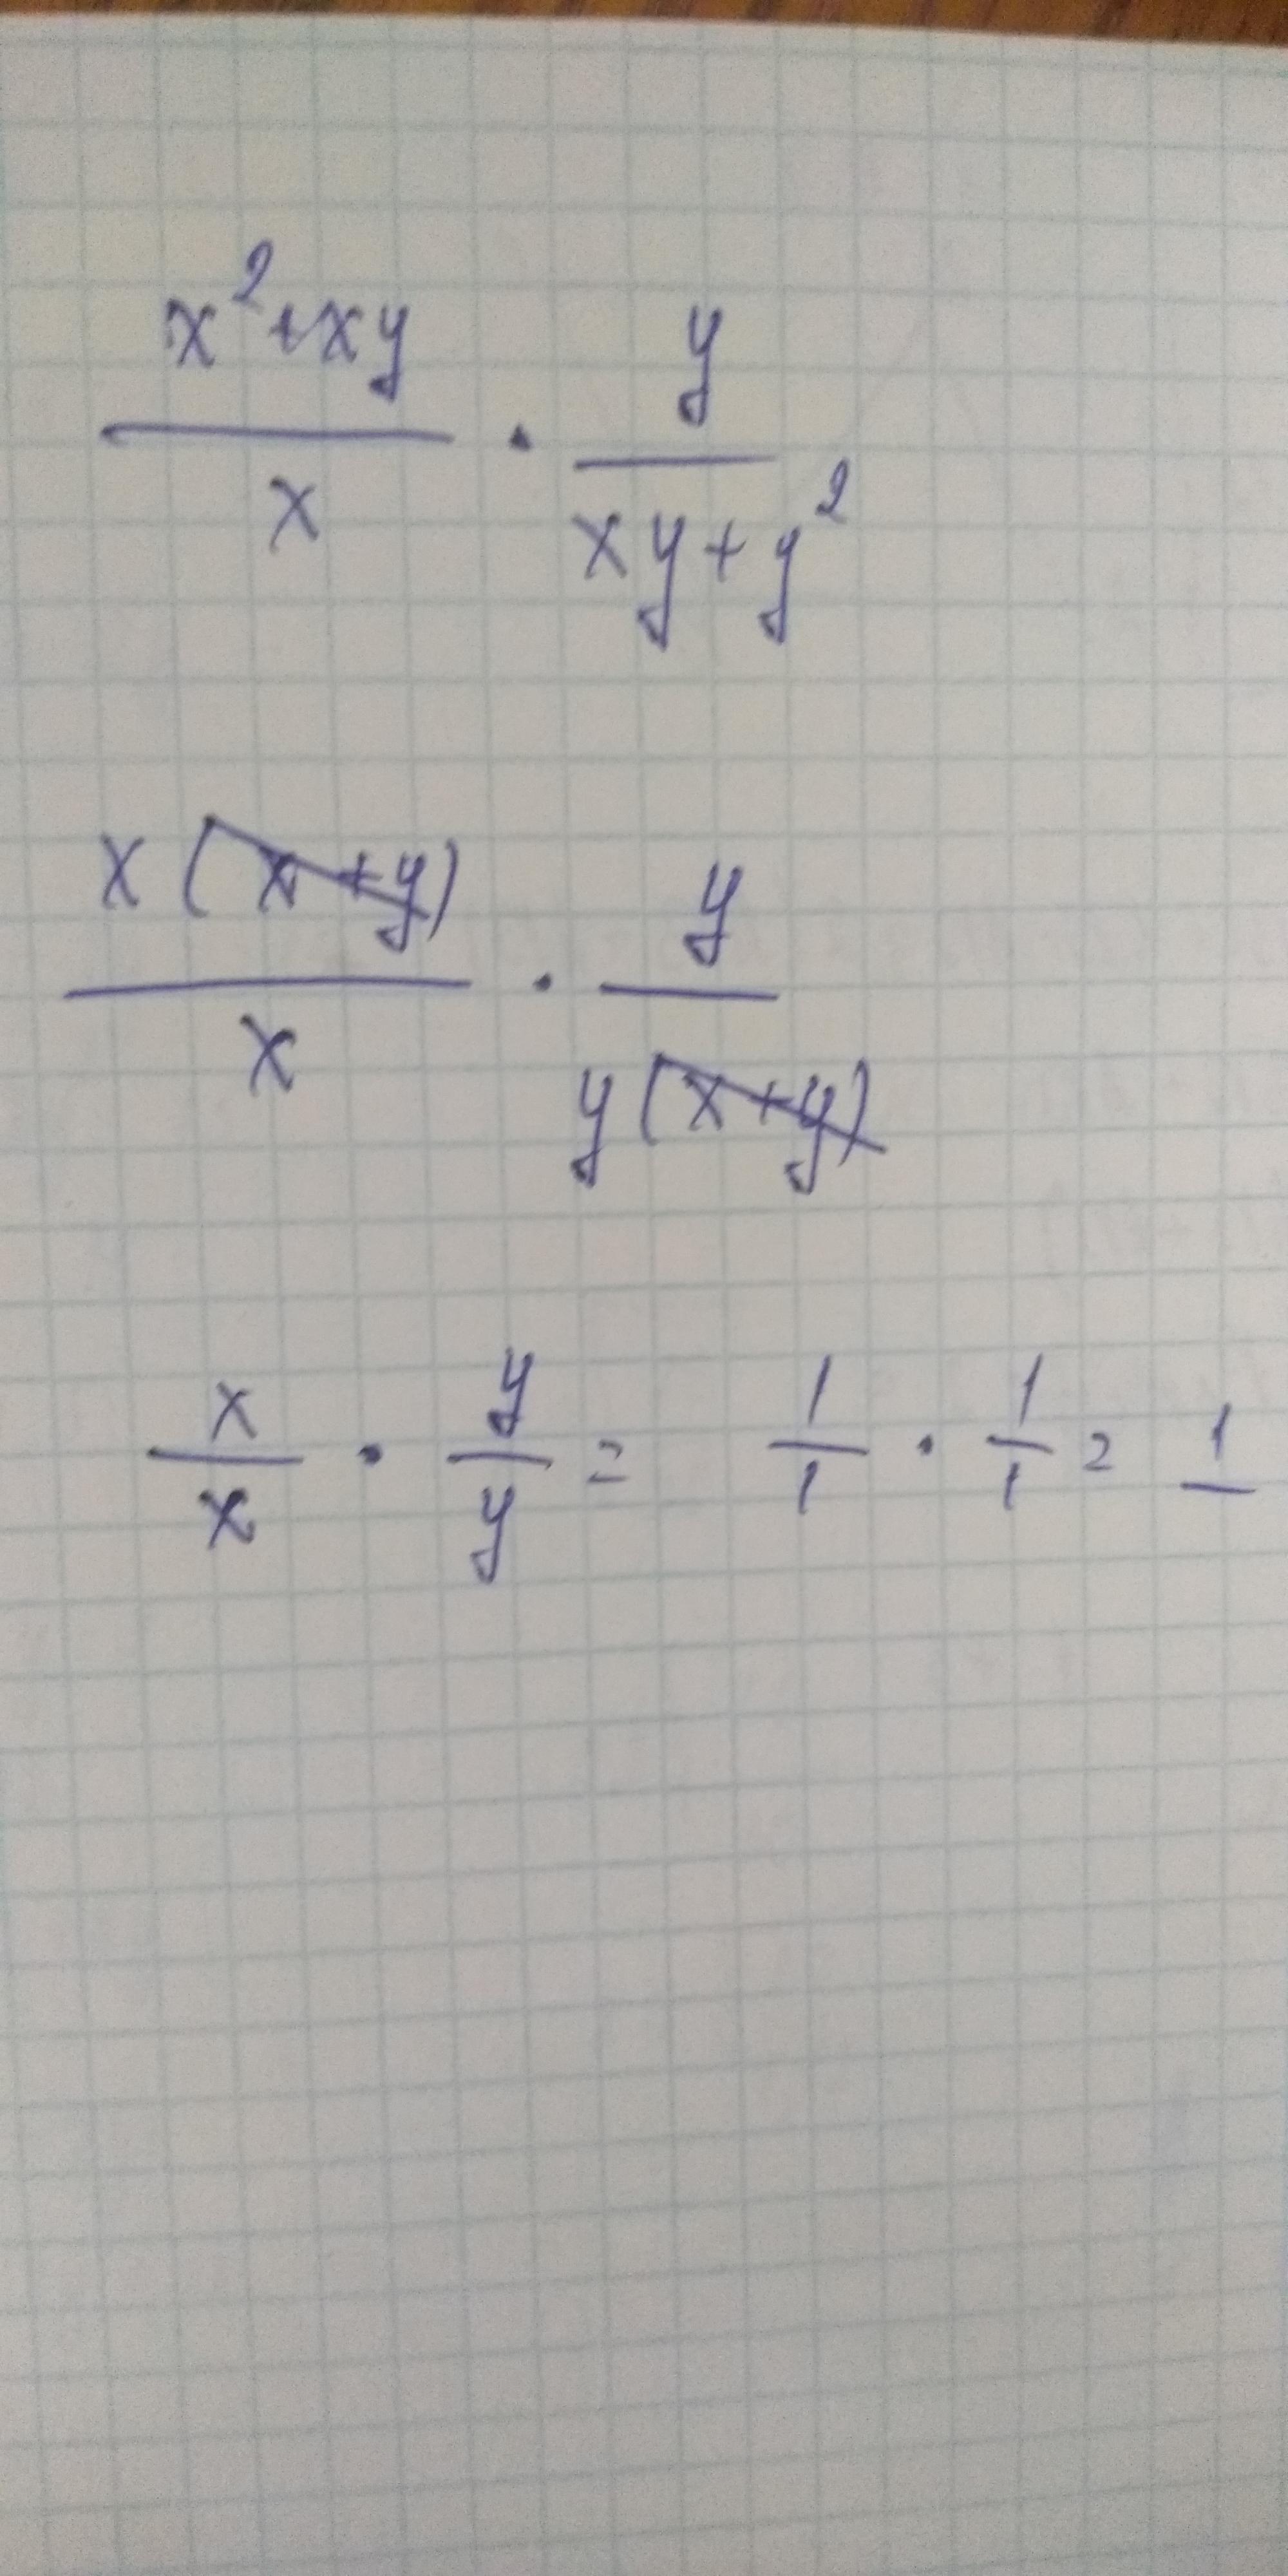 x²+xy / x · y / xy+y²
x(x+y) / x · y / y(x+y)
x/x · y/y = 1/1 · 1/1 = 1